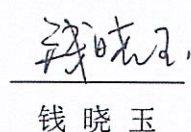 钱晓玉
钱晓玉